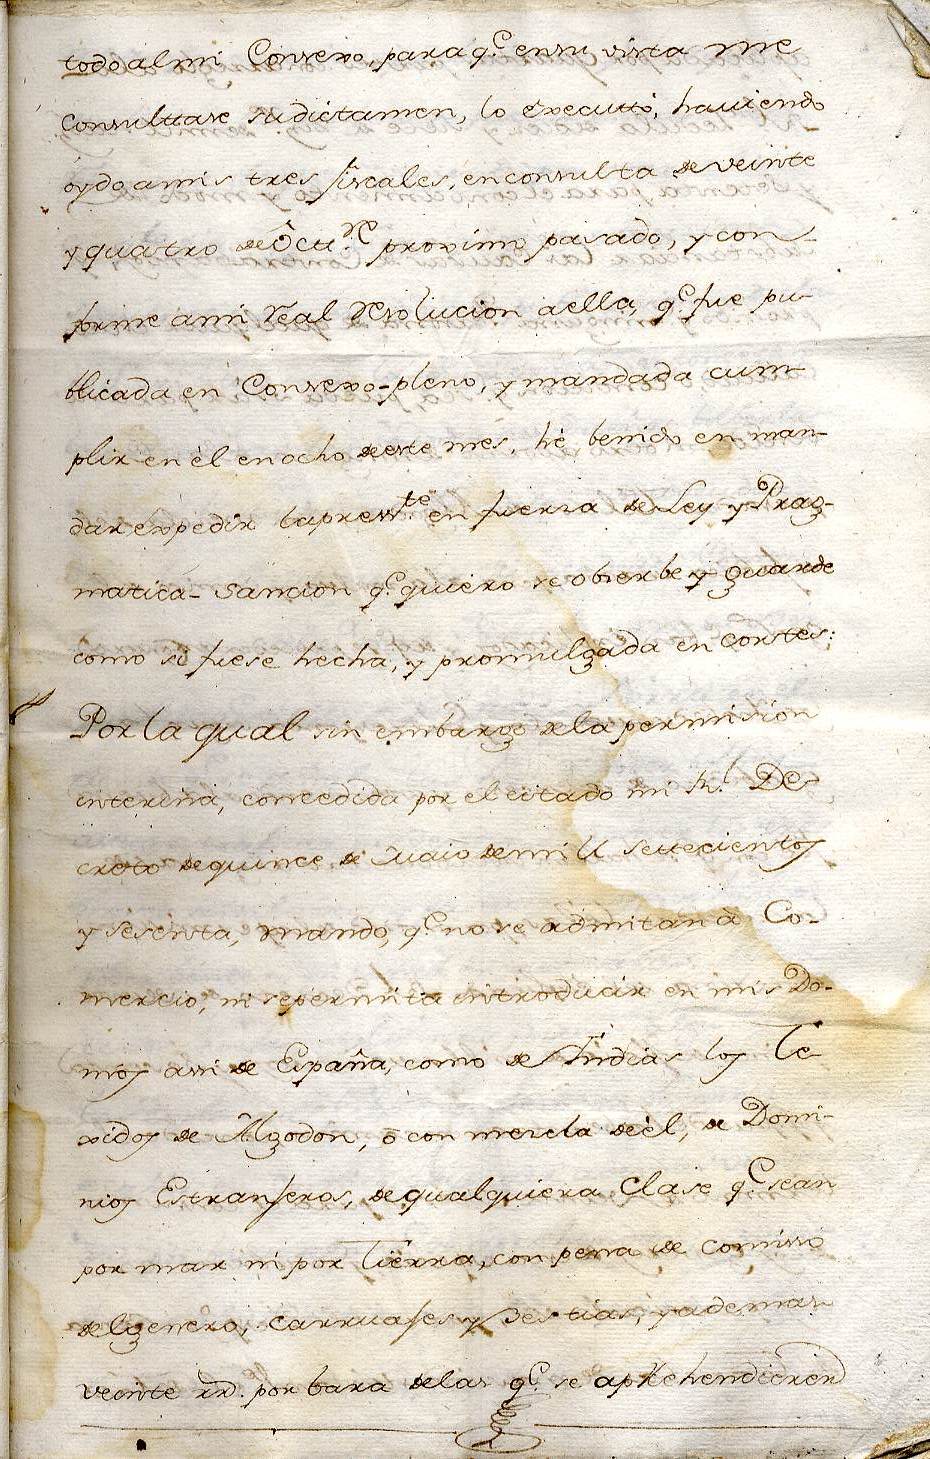 todo al mi Consexo, para q.e en su vista me
consultase su dictamen, lo executtó, haviendo
oydo a mis tres fiscales, en consulta de veinte
y quatro de Octu.re proximo pasado, y con-
forme a mi Real Resolucion a ella, q.e fue pu-
blicada en Consexo-pleno, y mandada cum-
plir en èl en ocho de este mes, hé benido en man-
dar expedir la pres.te en fuerza de Ley y Prag-
matica-Sancion q.e quiero se obserbe y guarde
como si fuese hecha, y promulgada en Cortes:
Por la qual sin embargo de la permision
interina, concedida por el citado mi R.l De-
creto de quince de Maio de mill settecientos
y sesenta, mando, q.e no se admitan à Co-
mercio, ni se permita introducir en mis Do-
mos assi de España, como de Indias los Te-
xidos de Algodon, ò con mezcla de èl, de Domi-
nios Estranjeros, de qualquiera Clase q.e sean
por mar ni por Tierra, con pena de comisso
del genero, carruajes y Bestias, y ademas
veinte rr.d por bara de las q.e se aprehendieren